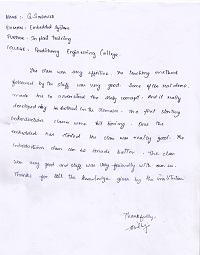 NAME :- G.
COURSE :- Embedded System
PURPOSE :- Inplant Training
COLLEGE :- Engineering College.
The class was very effective. The teaching method
followed by the staff was very good. Some of the
made me to understand the concept. And it really
developed my in the domain. The first
introduction classes were bit boring. Once the
has started the class was really good. The
introduction class can be made better. The class
was very good and staff was very friendly with us.
Thanks for all the knowledge given by the institution
Thankfully,